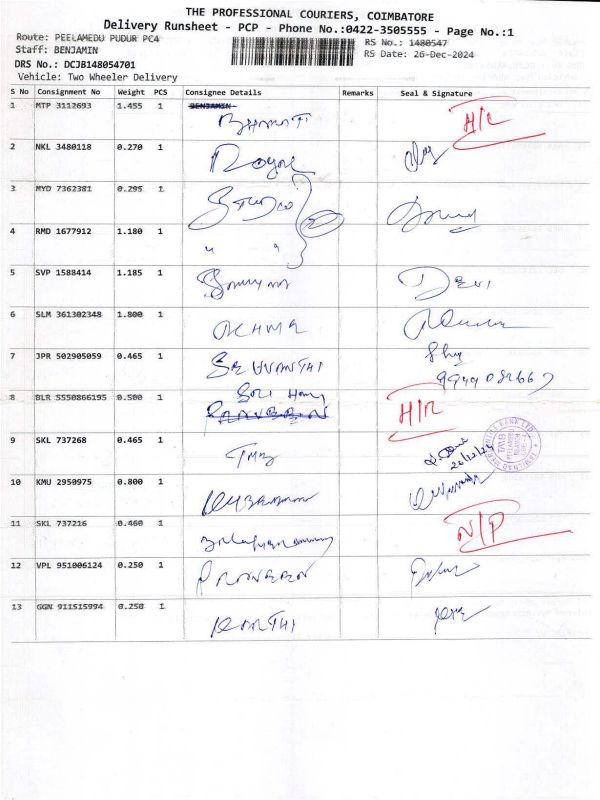 THE PROFESSIONAL COURIERS, COIMBATORE
Delivery Runsheet - PCP - Phone No.:0422-3505555 - Page No.:1
Route: PEELAMEDU PUDUR PC4
RS No.: 1480547
Staff: BENJAMIN
RS Date: 26-Dec-2024
DRS No.: DCJB148054701
Vehicle: Two Wheeler Delivery
S No Consignment No Weight PCS Consignee Details Remarks Seal & Signature
1 MTP 3112693 1.455 1 BENJAMIN
BHARATI H/L
2 NKL 3480118 0.270 1
3 MYD 7362381 0.295 1 STUDIO
4 RMD 1677912 1.180 1 " "
5 SVP 1588414 1.185 1 DEVI
6 SLM 361302348 1.800 1
7 JPR 502905059 0.465 1 SRIVANTHI
8 BLR 5550866195 0.500 1 H/L
9 SKL 737268 0.465 1 TMB 26/12/24
10 KMU 2950975 0.800 1
11 SKL 737216 0.460 1 N/P
12 VPL 951006124 0.250 1 PRAVEEN
13 GGN 911515994 0.250 1 KARTHI